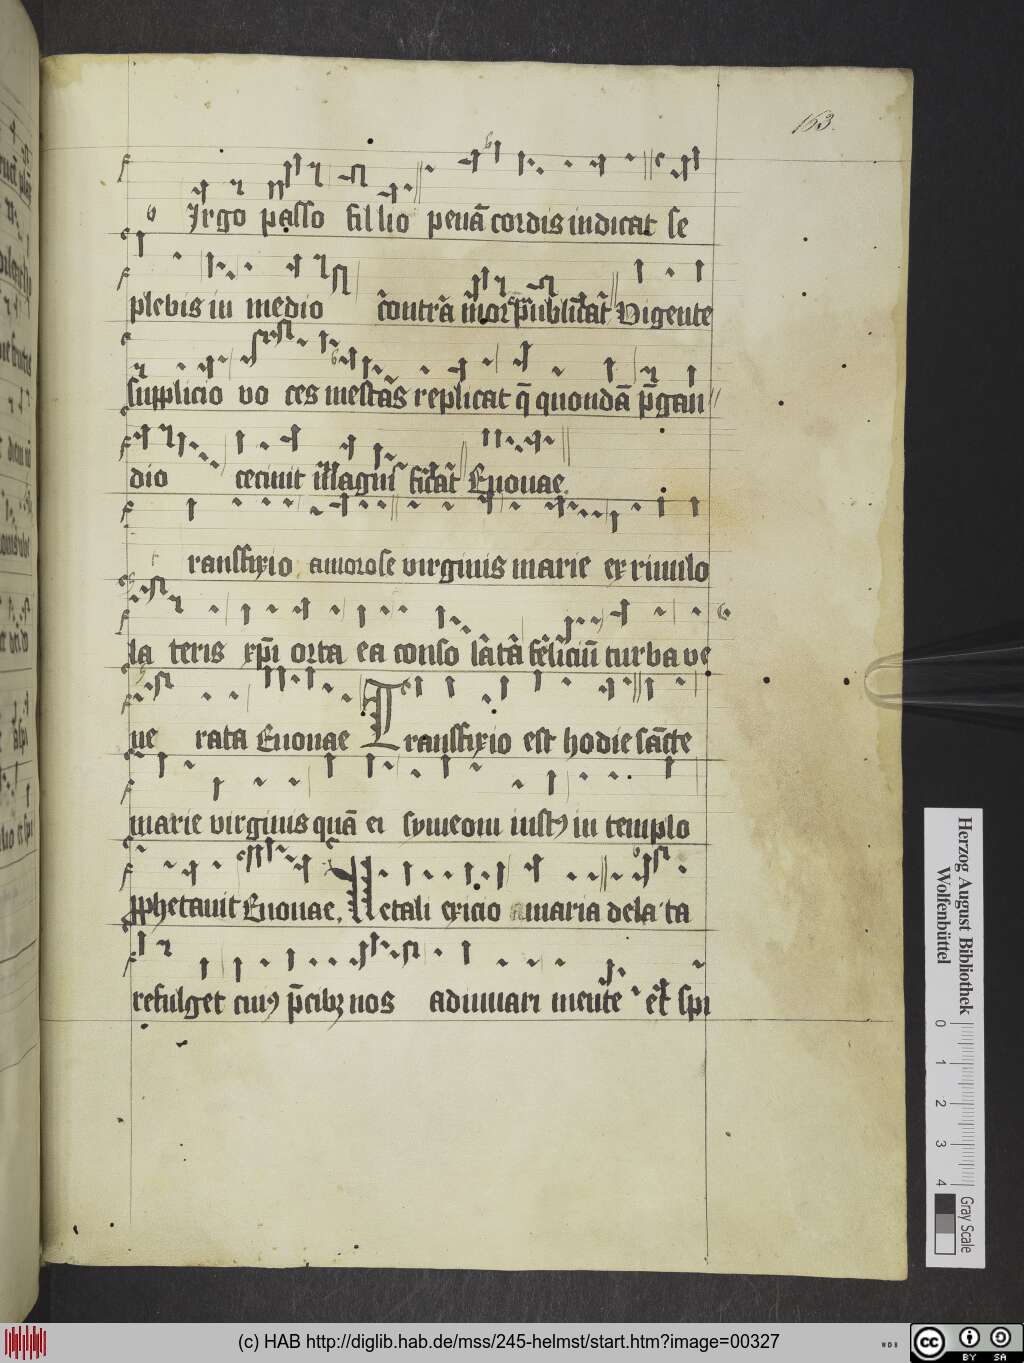 163.
Jrgo passo fil lio penā cordis indicat se
plebis in medio Vigente
supplicio vo ces mestas replicat q̄ quondā p̄gau
dio cecinit Euouae.
ransfixio amorose virginis marie ex riuulo
la teris xp̄i orta ea conso turba ve
ne rata Euouae Transfixio est hodie sācte
marie virginis quā ei symeon iustꝯ in templo
ꝓphetauit Euouae, Netali exicio maria dela ta
refulget cuiꝯ p̄cibꝫ nos adiuuari spi
Herzog August Bibliothek
Wolfenbüttel
0 1 2 3 4
Gray Scale
(c) HAB http://diglib.hab.de/mss/245-helmst/start.htm?image=00327
WDB
cc BY SA